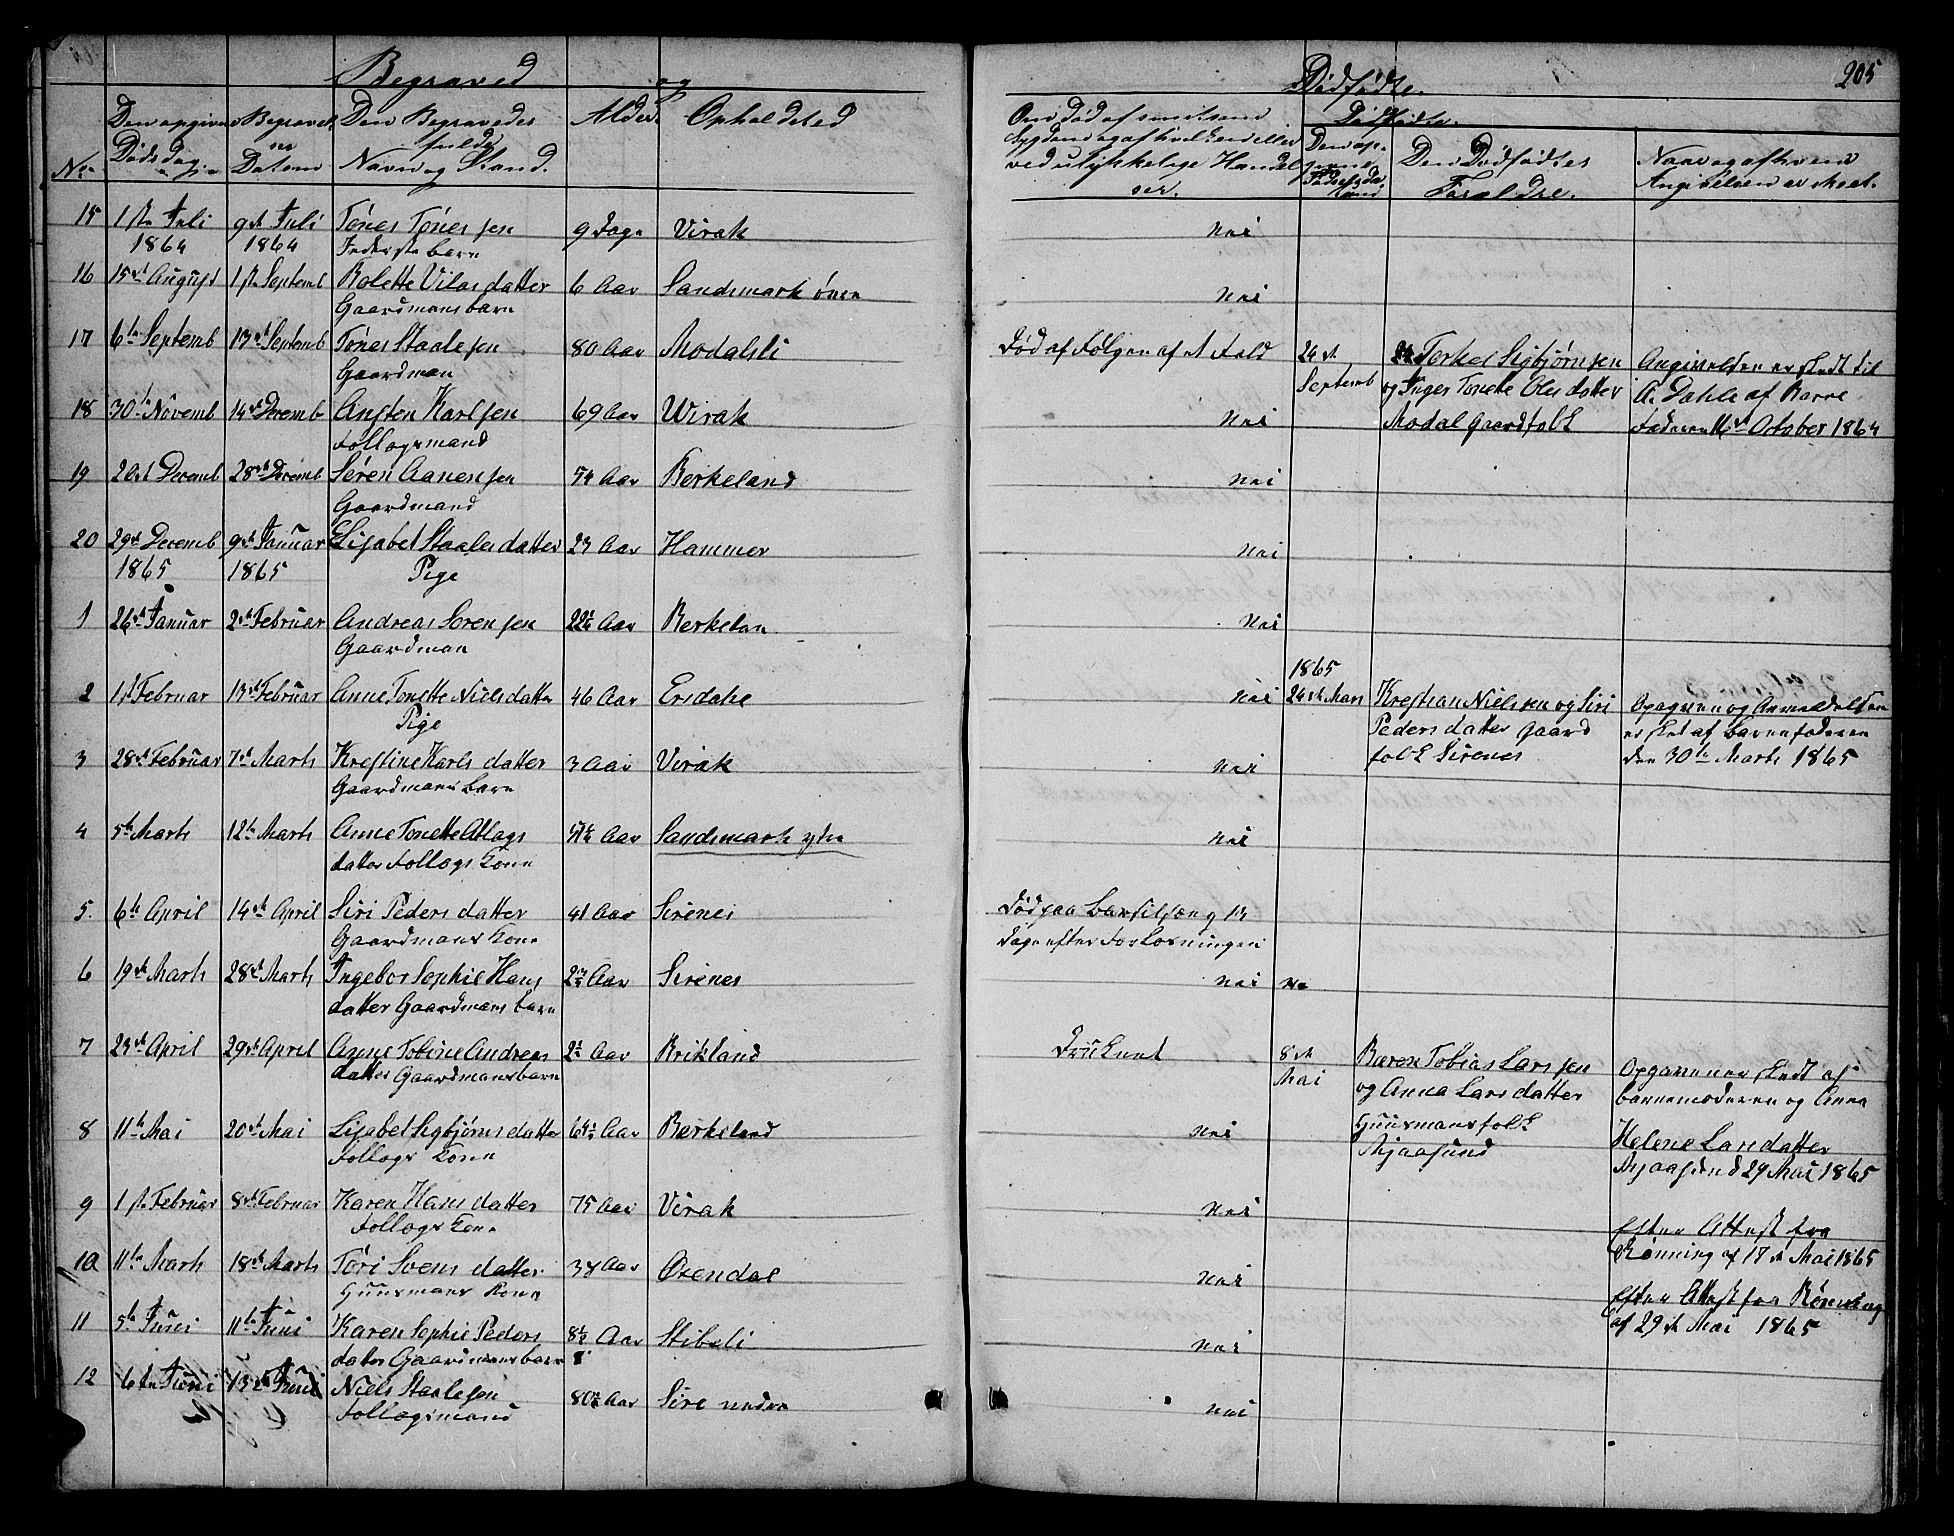 Begraved og Dødfødte. 205
No
Den opgivne Dødsdag.
Begravelse Datem
Den Begravedes fulde Navn og Stand.
Alder
Opholdsted
Om død af smitsom Sygdom og af hvilken eller ved ulykkelige Hændelser.
Dødfødte.
Den Dødfødtes Forældre.
Navn og af hvem Angivelsen er skeet.
15 1ste Juli 9de Juli Tønes Tønessen 9 Dage Virak Nei
1864 1864 barn
16 15de August 1ste Septemb Bolette Vilasdatter 6 Aar Sandsmark øvre Nei
Gaardmans barn
17 6te Septemb 13de Septemb Tønes Staalesen 80 Aar Modalsli Død af Følgen af et Fald 24de Terkel Sigbjørnsen Angivelsen er skedt til
Gaardman Septemb og Inger Tonette Olesdatter A. Dahle af Barne
18 30te Novemb 14de Decemb Ansten Karlsen 69 Aar Wirak Nei Modal Gaardfolk October 1864
Follogsmand
19 20de Decemb 28de Decemb Søren Aanensen 74 Aar Berkeland Nei
Gaardmand
20 29de Decemb 9de Januar Elisabet Staalesdatter 23 Aar Hammer Nei
1865 1865 Pige
1 26de Januar 2de Februar Andreas Sorensen 22½ Aar Berkelan Nei
Gaardman
1865
2 1st Februar 13de Februar Anne Tonette Nielsdatter 46 Aar Ersdahl Nei 24de Mars Krestian Nielssen og Siri Opgaven og Anmeldelsen
Pige Pedersdatter Gaard er sket af Barnefaderen
3 28de Februar 7de Marts Krestine Karlsdatter 3 Aar Virak Nei folk Sirenes den 30te Marts 1865
Gaardmans Barn
4 5te Marts 12te Marts Anne Tonette Atlags Aar Sandsmark ytre Nei
datter Follogs Kone
5. 6te April 14de April Siri Pedersdatter 41 Aar Sirenes Død paa Barselseng 13
Gaardmans Kone Dage efter Forløsningen
6 19de Marts 28de Marts Ingebor Sophie Hans Aar Sirenes Nei Ne
datter Gaardmans barn
7 23de April 29de April Anne Tobine Andreas 2½ Aar Brikland Druknet 8de Baren Tobias Larssen Opgavenen skedt af
datter Gaardmans barn Mai og Anna Larsdatter barnemoderen og Anna
8 11te Mai 20de Mai Lisabet Sigbjørnsdatter 64½ Aar Berkeland Nei Huusmansfolk Helene Larsdatter
Follogs Kone Aajaasund 29 Mai 1865
9 1ste Februar 8de Februar Karen Hansdatter 75 Aar Virak Nei
Follogs Kone Efter Attest fra
10 11te Marts 18de Marts Tóri Svensdatter 38 Aar Oxendal Nei Rønning af 17de Mai 1865
Huusmans Kone Efter Attest fra Rønning
11 5te Juni 11te Juni Karen Sophie Peders 8½ Aar Stibeli Nei af 29de Mai 1865
datter Gaardmans barn
12 6te Juni 13de Juni Niels Staalesen Aar Sire nedre Nei
Follogsmand